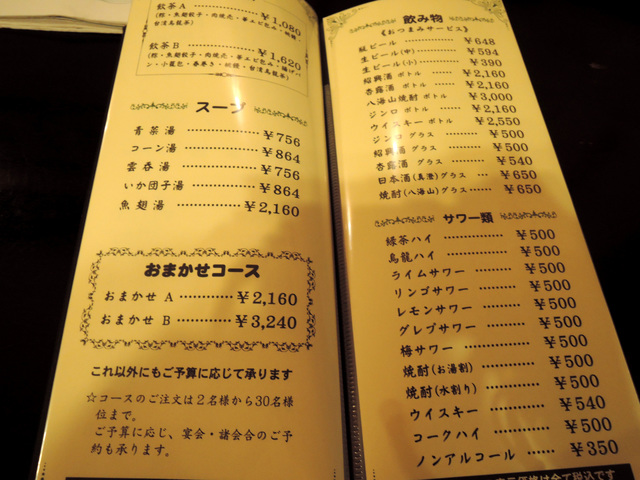 飲茶A ………… ￥1,080
飲茶B ………… ￥1,620
スープ
青菜湯 ………… ￥756
コーン湯 ………… ￥864
雲呑湯 ………… ￥756
いか団子湯 ………… ￥864
魚翅湯 ………… ￥2,160
おまかせコース
おまかせ A ………… ￥2,160
おまかせ B ………… ￥3,240
これ以外にもご予算に応じて承ります
☆コースのご注文は2名様から30名様
位まで。
ご予算に応じ、宴会・諸会合のご予
約も承ります。
飲み物
《おつまみサービス》
瓶ビール ………… ￥648
生ビール(中) ………… ￥594
生ビール(小) ………… ￥390
紹興酒 ボトル ………… ￥2,160
杏露酒 ボトル ………… ￥2,160
八海山焼酎 ボトル ……… ￥3,000
ジンロ ボトル ………… ￥2,160
ウイスキー ボトル ……… ￥2,550
ジンロ グラス ………… ￥500
紹興酒 グラス ………… ￥500
杏露酒 グラス ………… ￥540
日本酒(真澄)グラス …… ￥650
焼酎(八海山)グラス …… ￥650
サワー類
緑茶ハイ ………… ￥500
烏龍ハイ ………… ￥500
ライムサワー ………… ￥500
リンゴサワー ………… ￥500
レモンサワー ………… ￥500
グレプサワー ………… ￥500
梅サワー ………… ￥500
焼酎(お湯割) ………… ￥500
焼酎(水割り) ………… ￥500
ウイスキー ………… ￥540
コークハイ ………… ￥500
ノンアルコール ……… ￥350